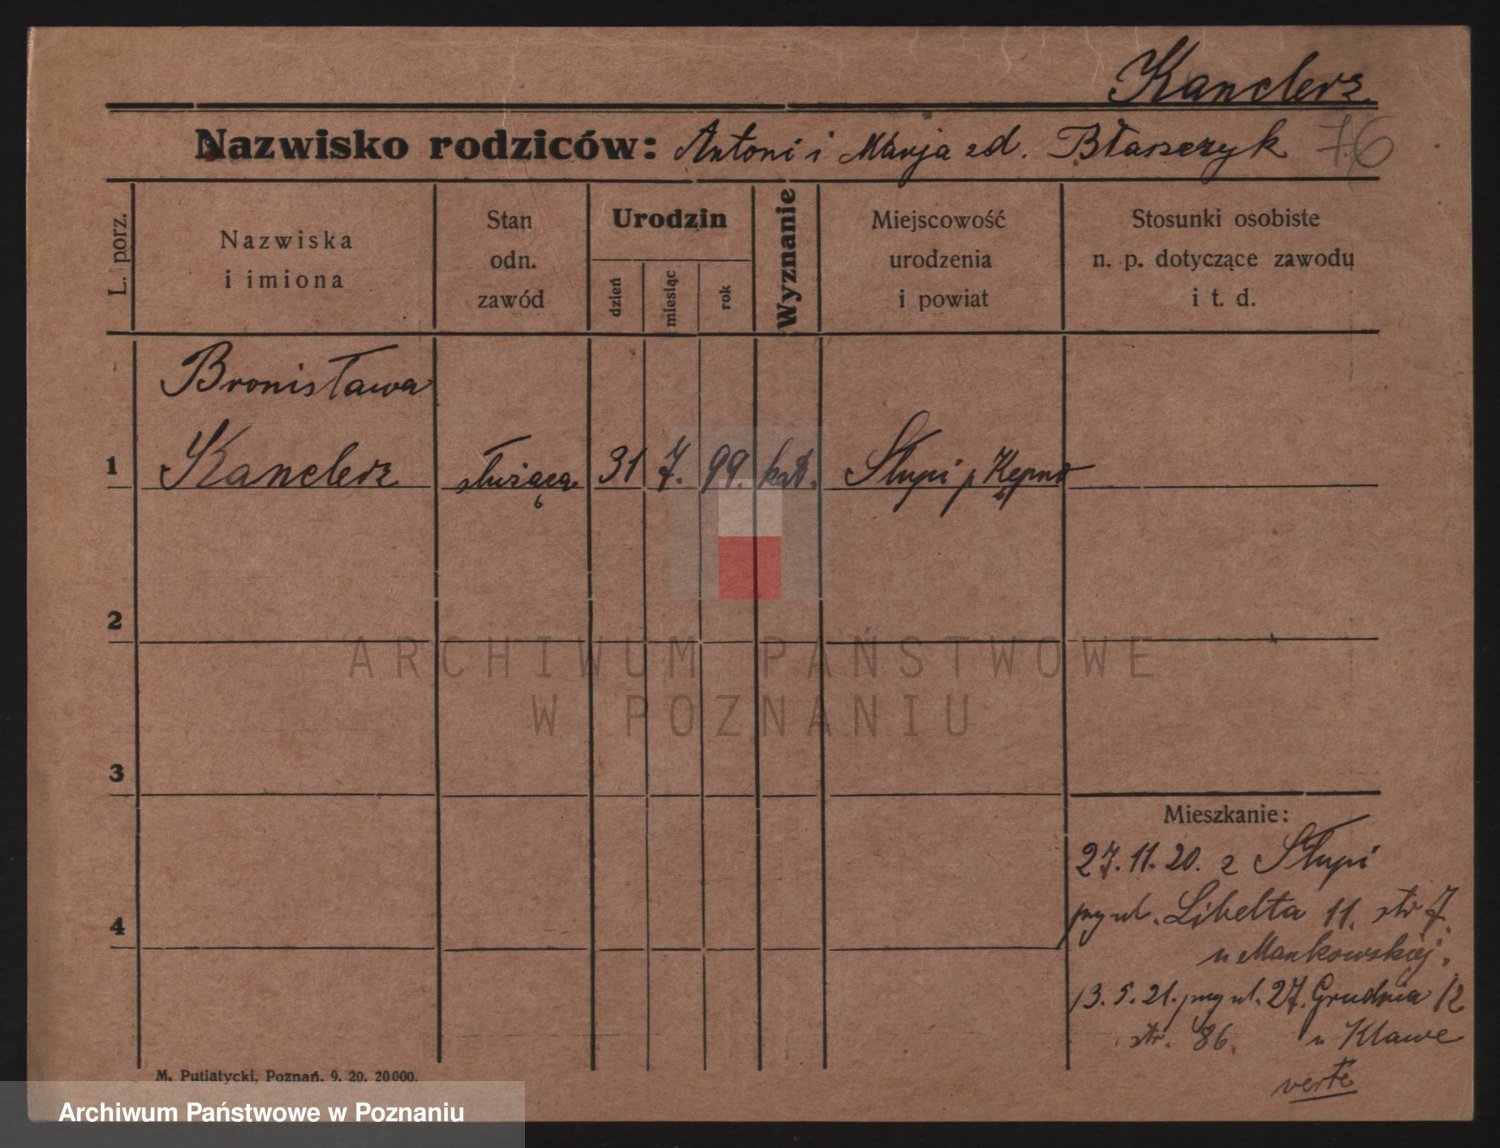 Kanclerz
Nazwisko rodziców: Antoni i Marja zd. Błaszczyk 76
L. porz.
Nazwiska
i imiona
Stan
odn.
zawód
Urodzin
dzień
miesiąc
rok
Wyznanie
Miejscowość
urodzenia
i powiat
Stosunki osobiste
n. p. dotyczące zawodu
i t. d.
Bronisława
1 Kanclerz służąca 31 7. 99. kat. Słupi p Kępno
2
3
4
ARCHIWUM PAŃSTWOWE
W POZNANIU
Mieszkanie:
27.11.20. z Słupi
przy ul. Libelta 11. str 7.
u Mankowskiej.
13.5.21. przy ul. 27. Grudnia 12
str. 86. u Klawe
verte
M. Putiatycki, Poznań. 9. 20. 20000.
Archiwum Państwowe w Poznaniu